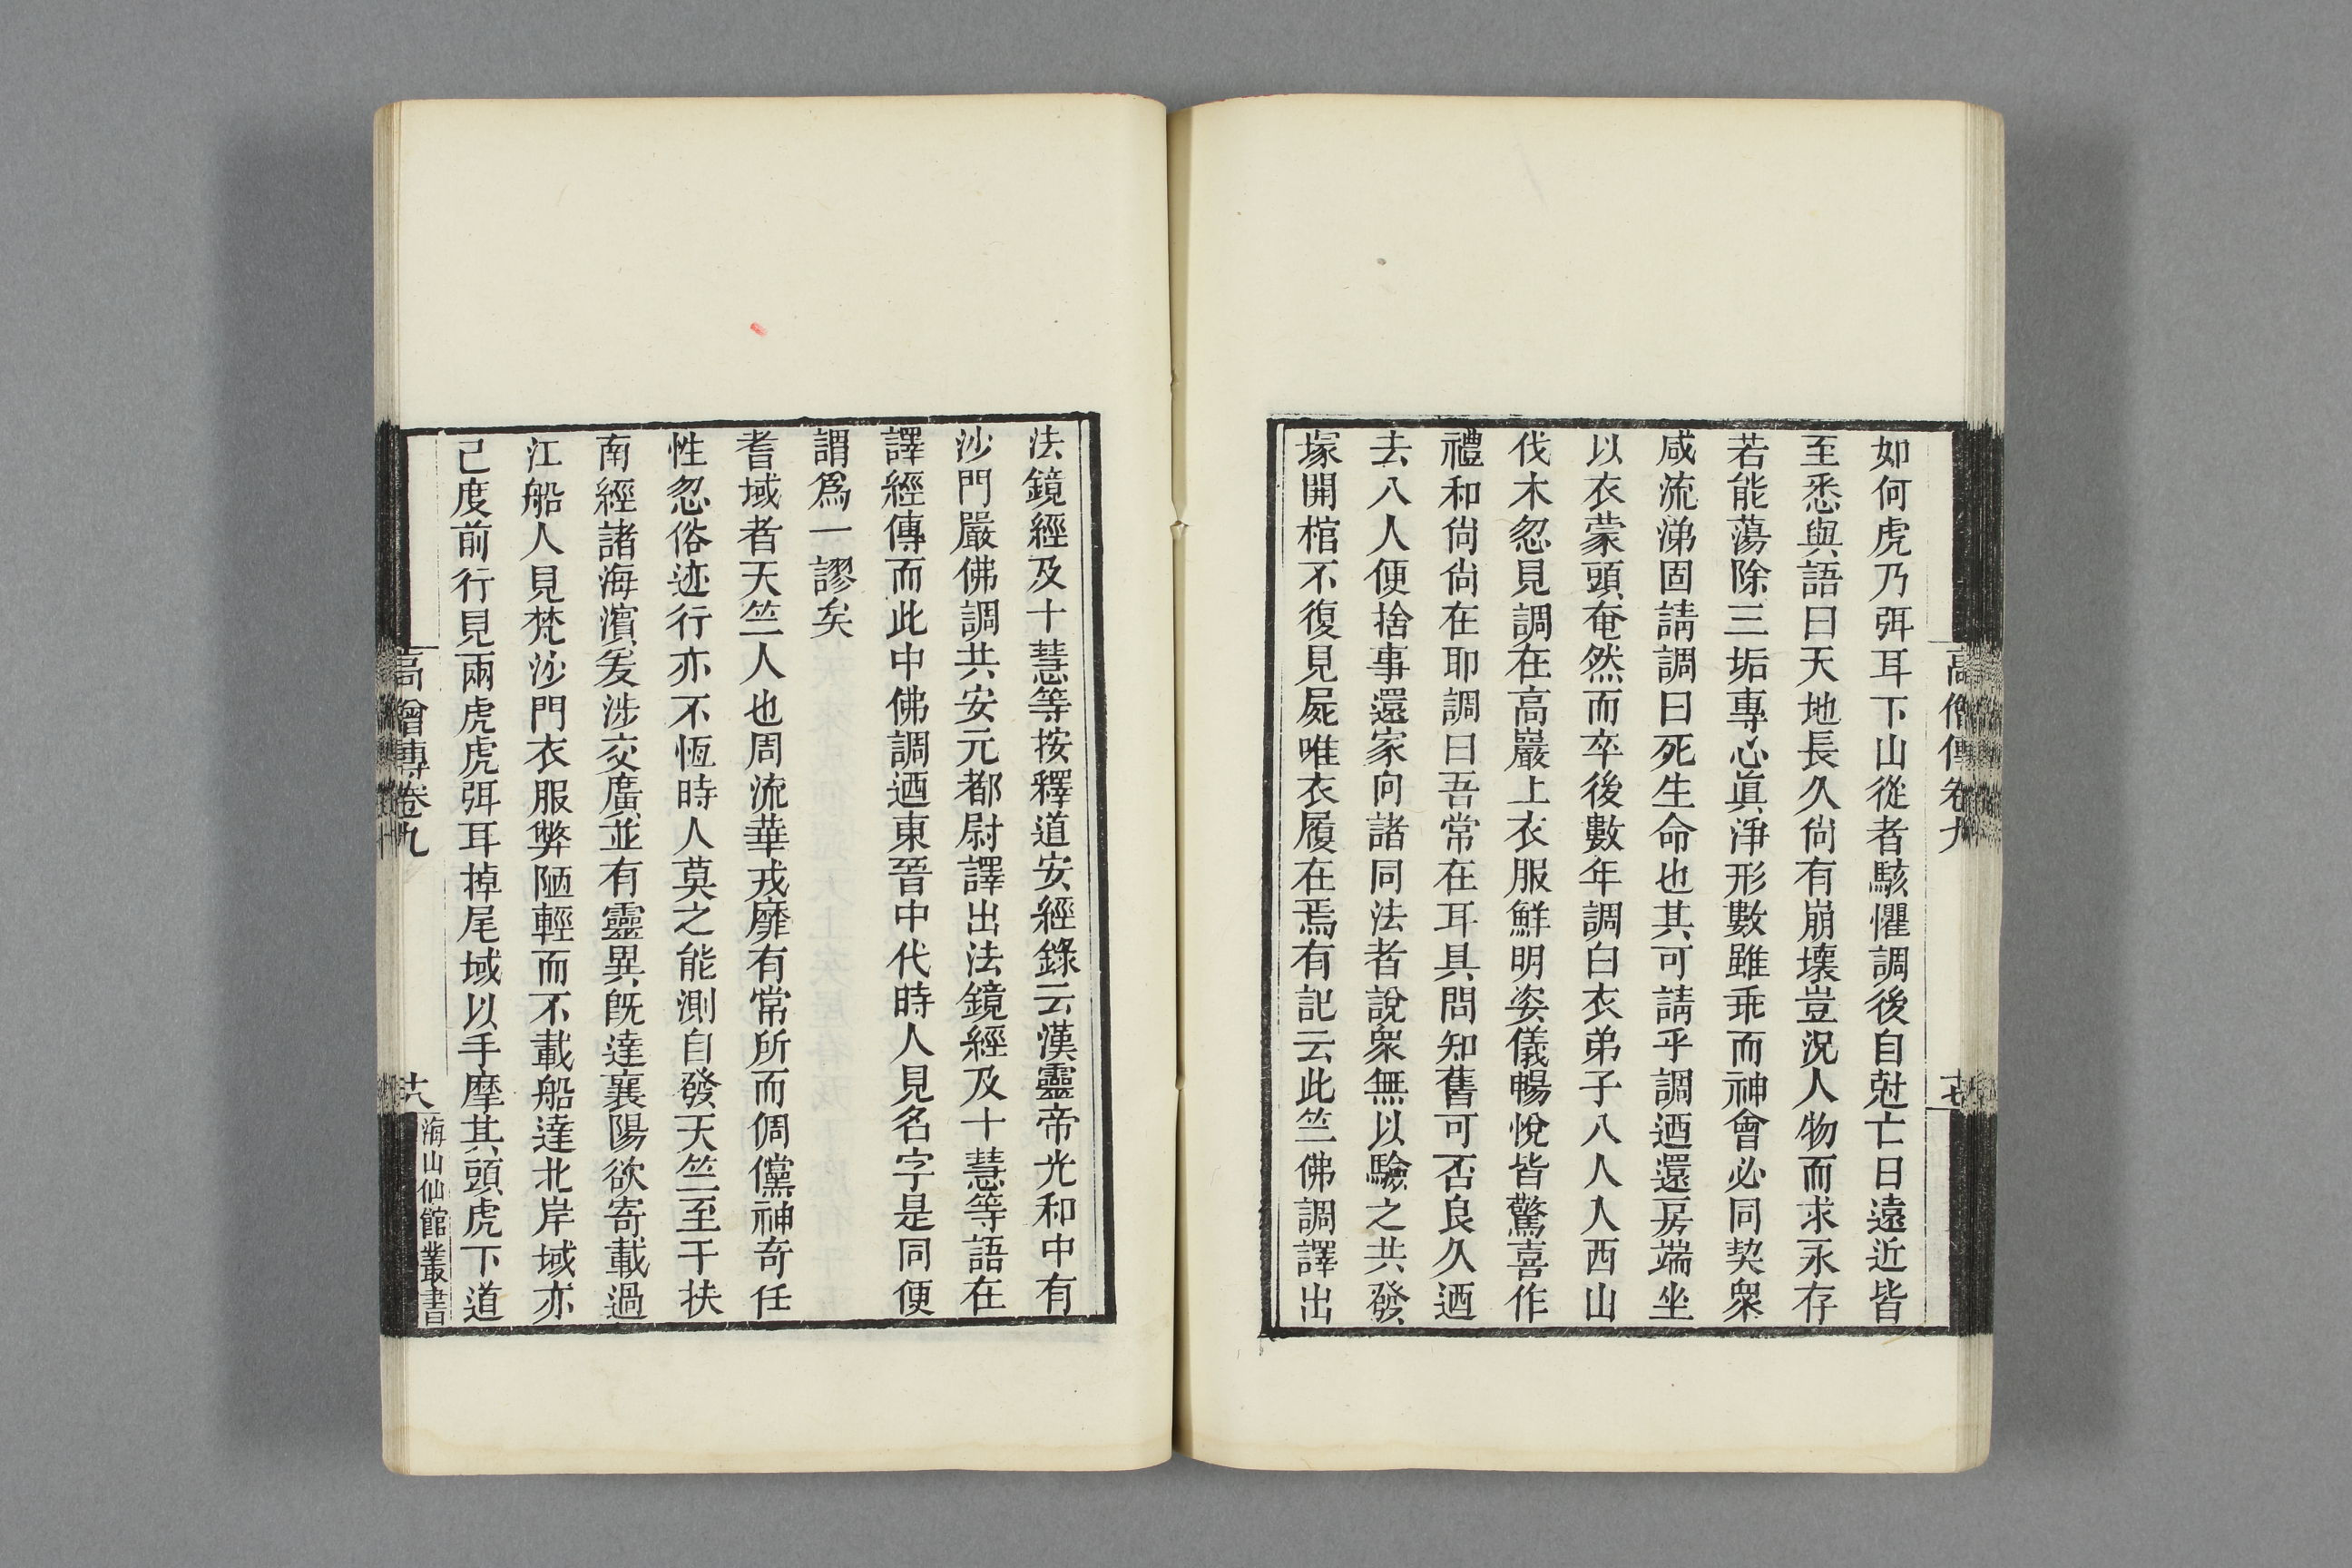 如何虎乃弭耳下山從者駭懼調後自尅亡日遠近皆
至悉與語曰天地長久尙有崩壞豈況人物而求永存
若能蕩除三垢專心眞淨形數雖乖而神會必同契衆
咸流涕固請調曰死生命也其可請乎調迺還房端坐
以衣蒙頭奄然而卒後數年調白衣弟子八人入西山
伐木忽見調在高巖上衣服鮮明姿儀暢悅皆驚喜作
禮和尙尙在耶調曰吾常在耳具問知舊可否良久迺
去八人便捨事還家向諸同法者說衆無以驗之共發
塚開棺不復見屍唯衣履在焉有記云此竺佛調譯出
高僧傳卷九
十七
法鏡經及十慧等按釋道安經錄云漢靈帝光和中有
沙門嚴佛調共安元都尉譯出法鏡經及十慧等語在
譯經傳而此中佛調迺東晉中代時人見名字是同便
謂爲一謬矣
耆域者天竺人也周流華戎靡有常所而倜儻神奇任
性忽俗迹行亦不恆時人莫之能測自發天竺至于扶
南經諸海濱爰涉交廣並有靈異旣達襄陽欲寄載過
江船人見梵沙門衣服弊陋輕而不載船達北岸域亦
已度前行見兩虎虎弭耳掉尾域以手摩其頭虎下道
高僧傳卷九
十八
海山仙館叢書